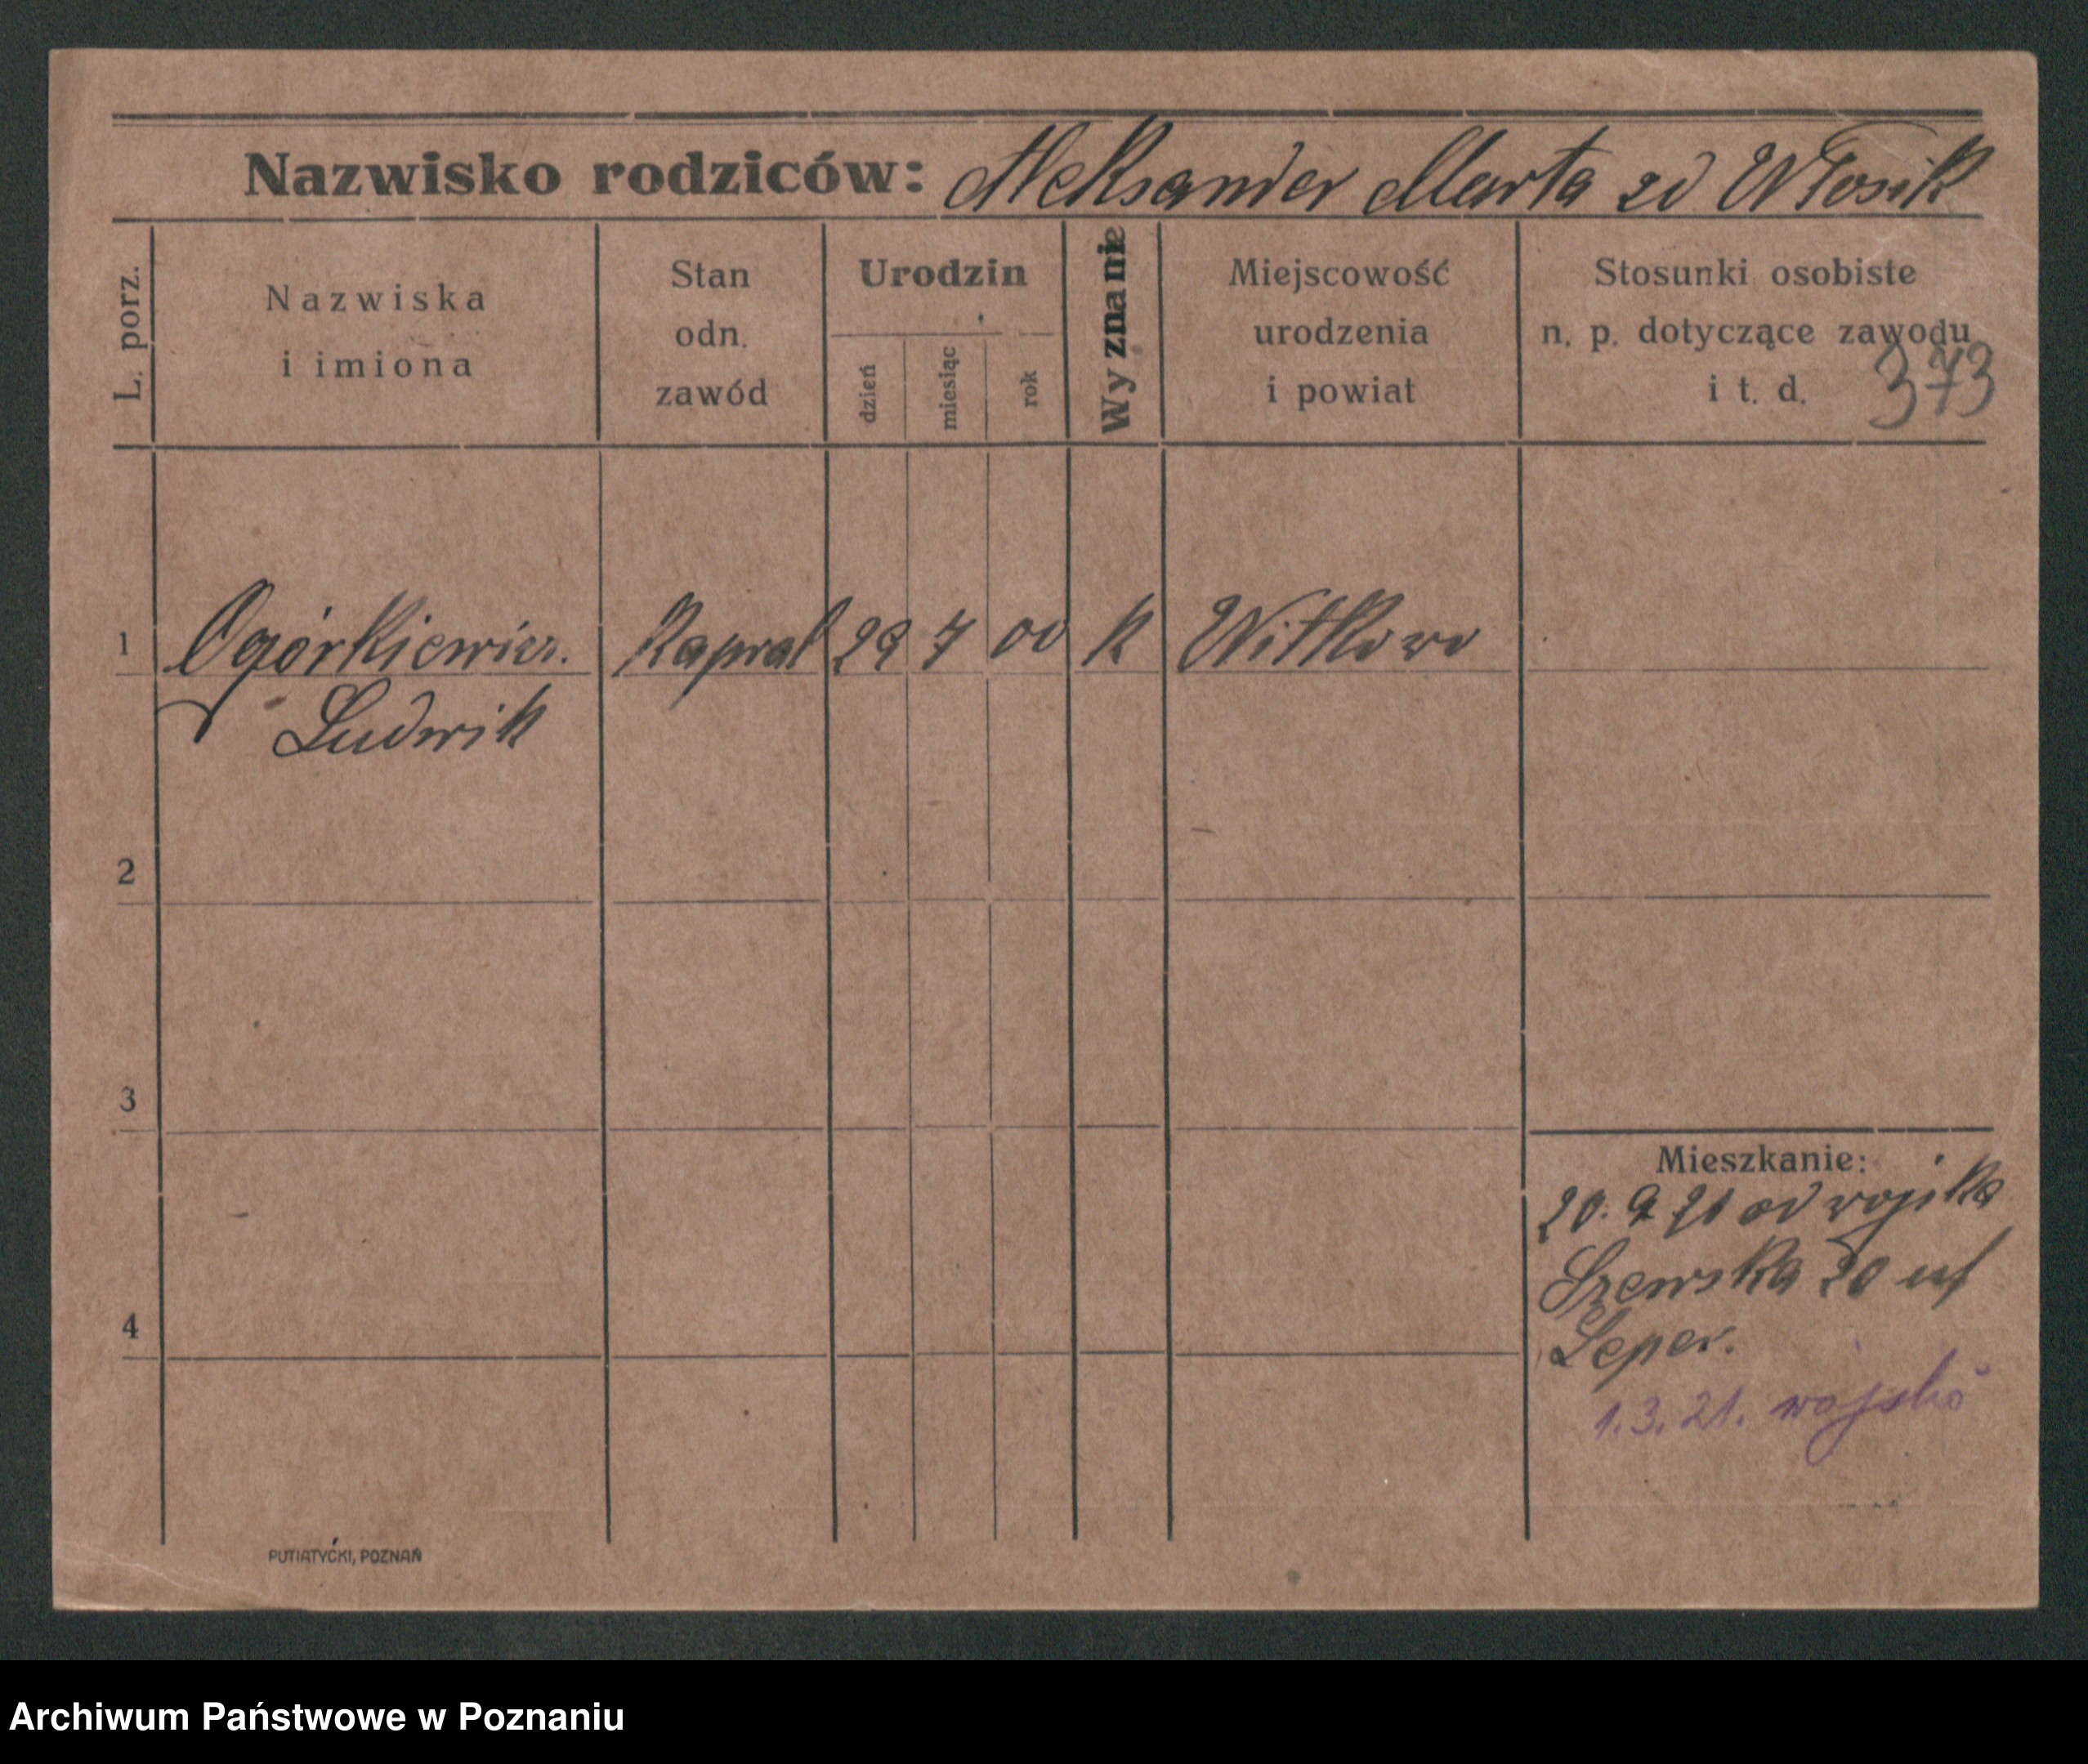 Nazwisko rodziców: Aleksander Marta zd Włosik
L. porz.
Nazwiska
i imiona
Stan
odn.
zawód
Urodzin
dzień
miesiąc
rok
Wyznanie
Miejscowość
urodzenia
i powiat
Stosunki osobiste
n. p. dotyczące zawodu
i t. d.
373
1 Ogórkiewicz. Kapral 29 7 00 k Witkowo
Ludwik
2
3
Mieszkanie:
20. 9 21 od wojska
Szewska 20 uf
4
Leper.
1.3.21. wojsko
PUTIATYCKI, POZNAŃ
Archiwum Państwowe w Poznaniu